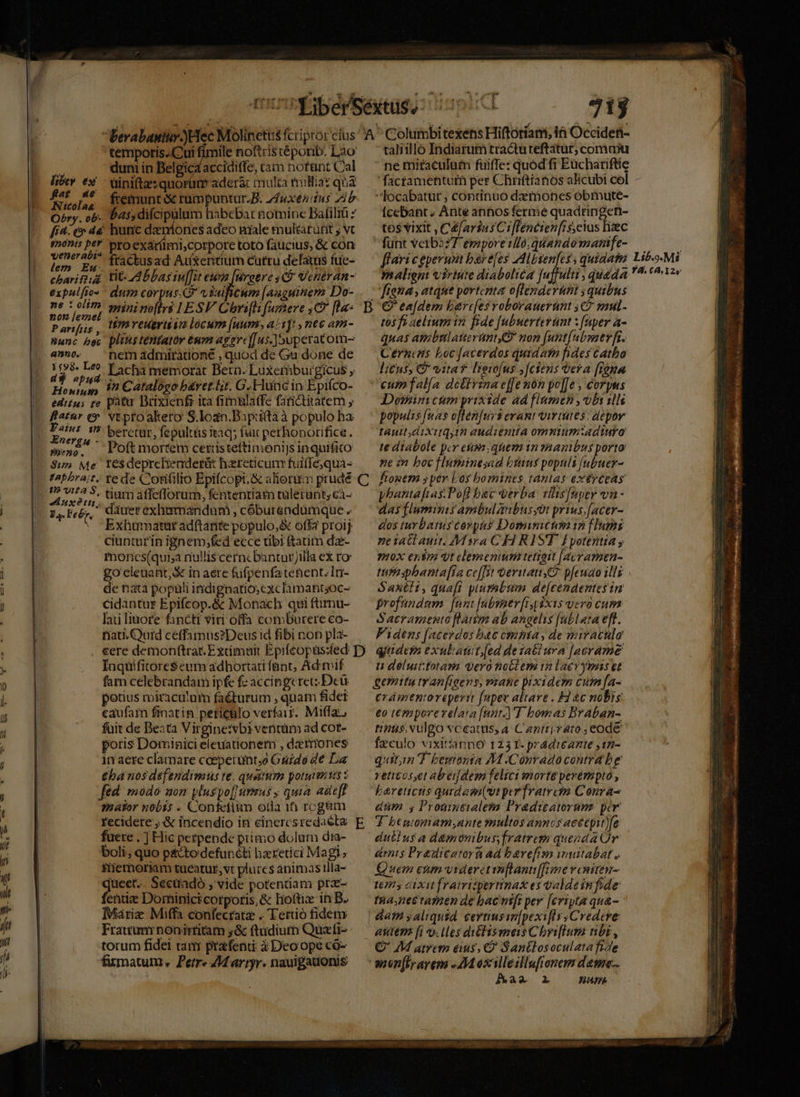 Liber Sextus. 715
berabantur.) Hec Molinetus scriptor eius
temporis. Cui simile nostris tēporib. Lao
duni in Belgica accidisse, tam norunt Cal
uinistæ: quorum aderāt multa millia: quā
fremunt & rumpuntur. B. Auxentius Ab
bas, discipulum habebat nomine Basiliū:
hunc dæmones adeo male multarunt, vt
pro exanimi, corpore toto saucius, & con
fractus ad Auxentium curru delatus fue-
rit. Abbas iussit eum surgere, & Veneran-
dum corpus & viuificum sanguinem Do-
mini nostri IESV Christi sumere, & sta-
tim reuersus in locum suum,
plius tentator eum aggressus. Superat om-
nem admirationē, quod de Gu done de
Lacha memorat Betn. Luxemburgicus,
in Catalogo hæret. lit. G. Hunc in Episco-
patu Brixiensi ita simulasse sanctitatem,
vt pro altero S. Ioan. Baptista à populo ha
beretur, sepultus itaq; fuit perhonorifice.
Post mortem certis testimonijs inquisito
res deprehenderūt hæreticum fuisse, qua-
re de Consilio Episcopi, & aliorum prudē
tium assessorum, sententiam tulerunt, ca-
dauer exhumandum, cōburendumque.
Exhumatur adstante populo, & ossa proij
ciuntur in ignem, sed ecce tibi statim dæ-
mones (qui a nullis cernebantur) illa ex ro
go eleuant, & in aere suspensa tenent. In-
de nata populi indignatio, exclamant, oc-
cidantur Episcop. & Monachi qui simu-
lati liuore sancti viri ossa comburere co-
nati. Quid cessamus? Deus id sibi non pla-
cere demonstrat. Extimuit Episcopus: sed
Inquisitores eum adhortati sunt, Ad mis
sam celebrandam ipse se accingeret: Deū
potius miraculum facturum, quam fidei
causam sineret in periculo versari. Missa
fuit de Beata Virgine: vbi ventum ad cor-
poris Dominici eleuationem, dæmones
in aere clamare cœperunt, ô Guido de La
cha nos defendimus te, quatum potuimus:
sed modo non pluspossumus, quia adest
maior nobis. Confestim ossa in rogum
recidere, & incendio in cineres redacta
fuere.] Hic perpende primo dolum dia-
boli, quo pacto defuncti hæretici Magi,
memoriam tueatur, vt plures animas illa-
queet. Secundò, vide potentiam præ-
sentiæ Dominici corporis, & hostiæ in B.
Mariæ Missa consecratæ. Tertiò fidem
Fratrum non irritam, & studium Quæsi-
torum fidei tam præsenti à Deo ope cō-
firmatum. Petre Martyr. nauigationis
A Columbi texens Historiam, in Occiden-
tali illo Indiarum tractu testatur, commu
ne miraculum fuisse: quod si Eucharistię
sacramentum per Christianos alicubi col
locabatur, continuo dæmones obmute-
scebant. Ante annos ferme quadringen-
tos vixit, Cæsarius Cisterciensis, eius hæc
sunt verba: Tempore illo, quando manife-
stari ceperunt hæreses Albienses, quidam
maligni virtute diabolica suffulti, quæda
signa, atque portenta ostenderunt, quibus
B & easdem hæreses roborauerunt, & mul-
tos fidelium in fide subuerterunt: super a-
quas ambulauerunt, & non sunt submersi.
Cernens hoc sacerdos quidam fides catho
licus, & vitæ religiosus, sciens vera signa
cum falsa doctrina esse non posse, corpus
Domini cum pixide ad flumen, vbi illi
populis suas ostensuri erant virtutes, depor
tauit, dixitq, in audientia omnium: adiuro
te diabole per eum, quem in manibus porto
ne in hoc flumine, ad huius populi subuer-
C sionem, per hos homines tantas exerceas
phantasias. Post hæc verba, illis super vn-
das fluminis ambulantibus, vt prius, sacer-
dos turbatus corpus Dominicum in flumi
ne iactauit. Mira CHRISTI potentia,
mox enim vt elementum tetigit sacramen-
tum, phantasia cessit veritati, & pseudo illi
Sancti, quasi plumbum descendentes in
profundum sunt submersi, pixis vero cum
Sacramento statim ab angelis sublata est.
Videns sacerdos hæc omnia, de miraculo
D quidem exultauit, sed de iactura sacramē
ti doluit: totam vero noctem in lacrymis et
gemitu transigens, mane pixidem cum sa-
cramento reperit super altare. Hæc nobis
eo tempore relata sunt.) Thomas Braban-
tinus, vulgo vocatus, à Cantiprato, eodē
sæculo vixit anno 1231. prædicante, in-
quit, in Thesaonia M. Conrado contra hæ
reticos, et ab eisdem felici morte perempto,
hæreticus quidam (vt per fratrem Conra-
dum, Prouincialem Prædicatorum per
E Theutoniam, ante multos annos accepi) se
ductus a dæmonibus, fratrem quenda Or
dinis Prædicatorū ad hæresim inuitabat.
Quem cum videret instantissime reniten-
tem, dixit fratri: pertinax es valde in fide
tua, nec tamen de hac nisi per scripta qua-
dam, aliquid certius inspexistis, Credere
autem si velles dictis meis Christum tibi,
& Matrem eius, & Sanctos oculata fide
monstrarem. Mox ille illusionem dæmo-
Aaa 2 num
liber ex
Nicolaa
Obry. ob-
expulsio-
ne: olim
Parisiis,
nunc hoc
anno.
1598. Leo
editus te
statur &
tur S.
Auxētii,
14. Febr.
Lib. 9. Mi
ra. ca. 12.